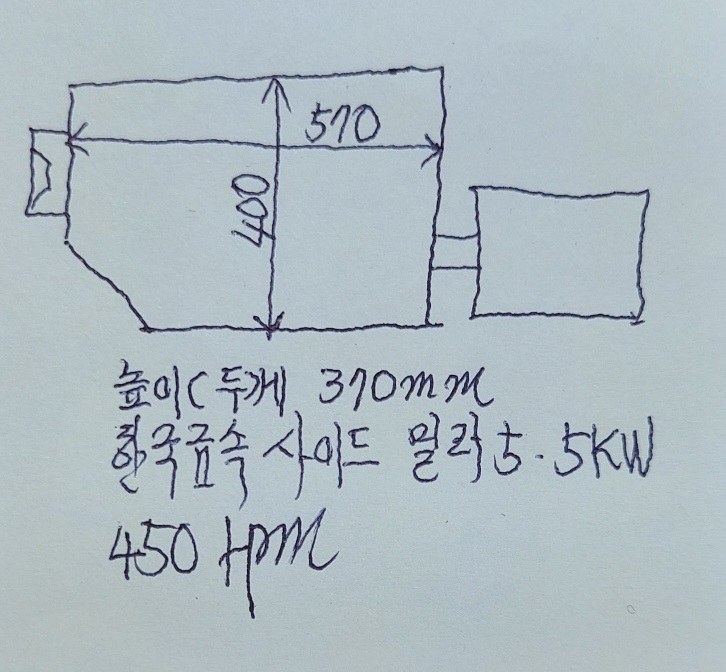 570
400
높이(두께 370mm
한국금속 사이드 밀러 5.5KW
450 rpm